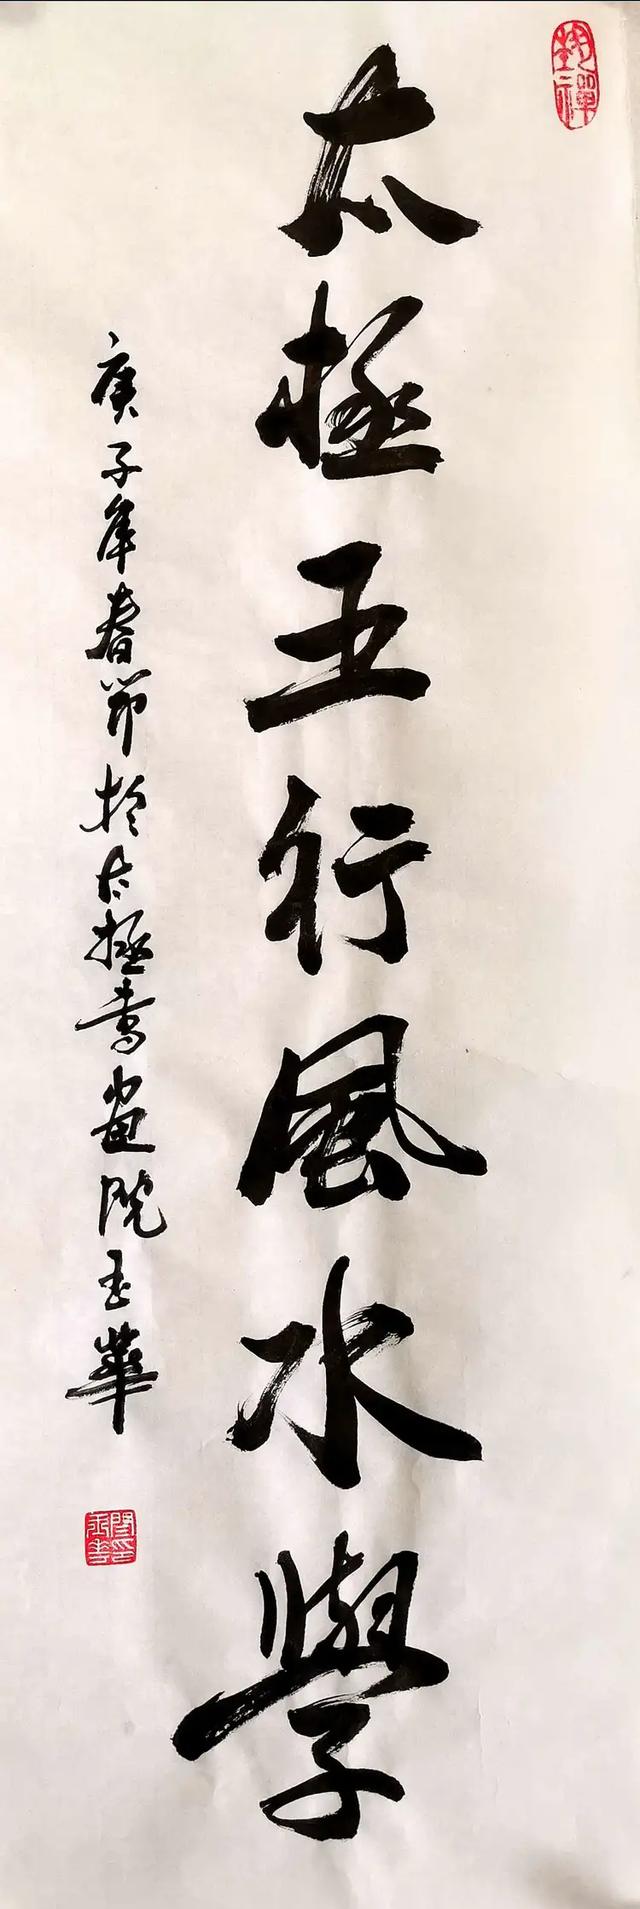 太極五行風水學
庚子年春節於太極書畫院玉華